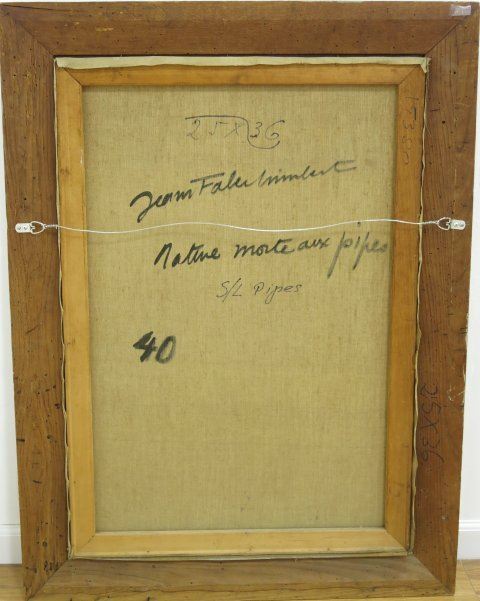 25X36
Jean Fabu
Nature morte aux pipes
S/L Pipes
40
25X36